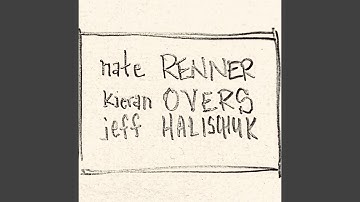 nate RENNER
kieran OVERS
jeff HALISCHUK